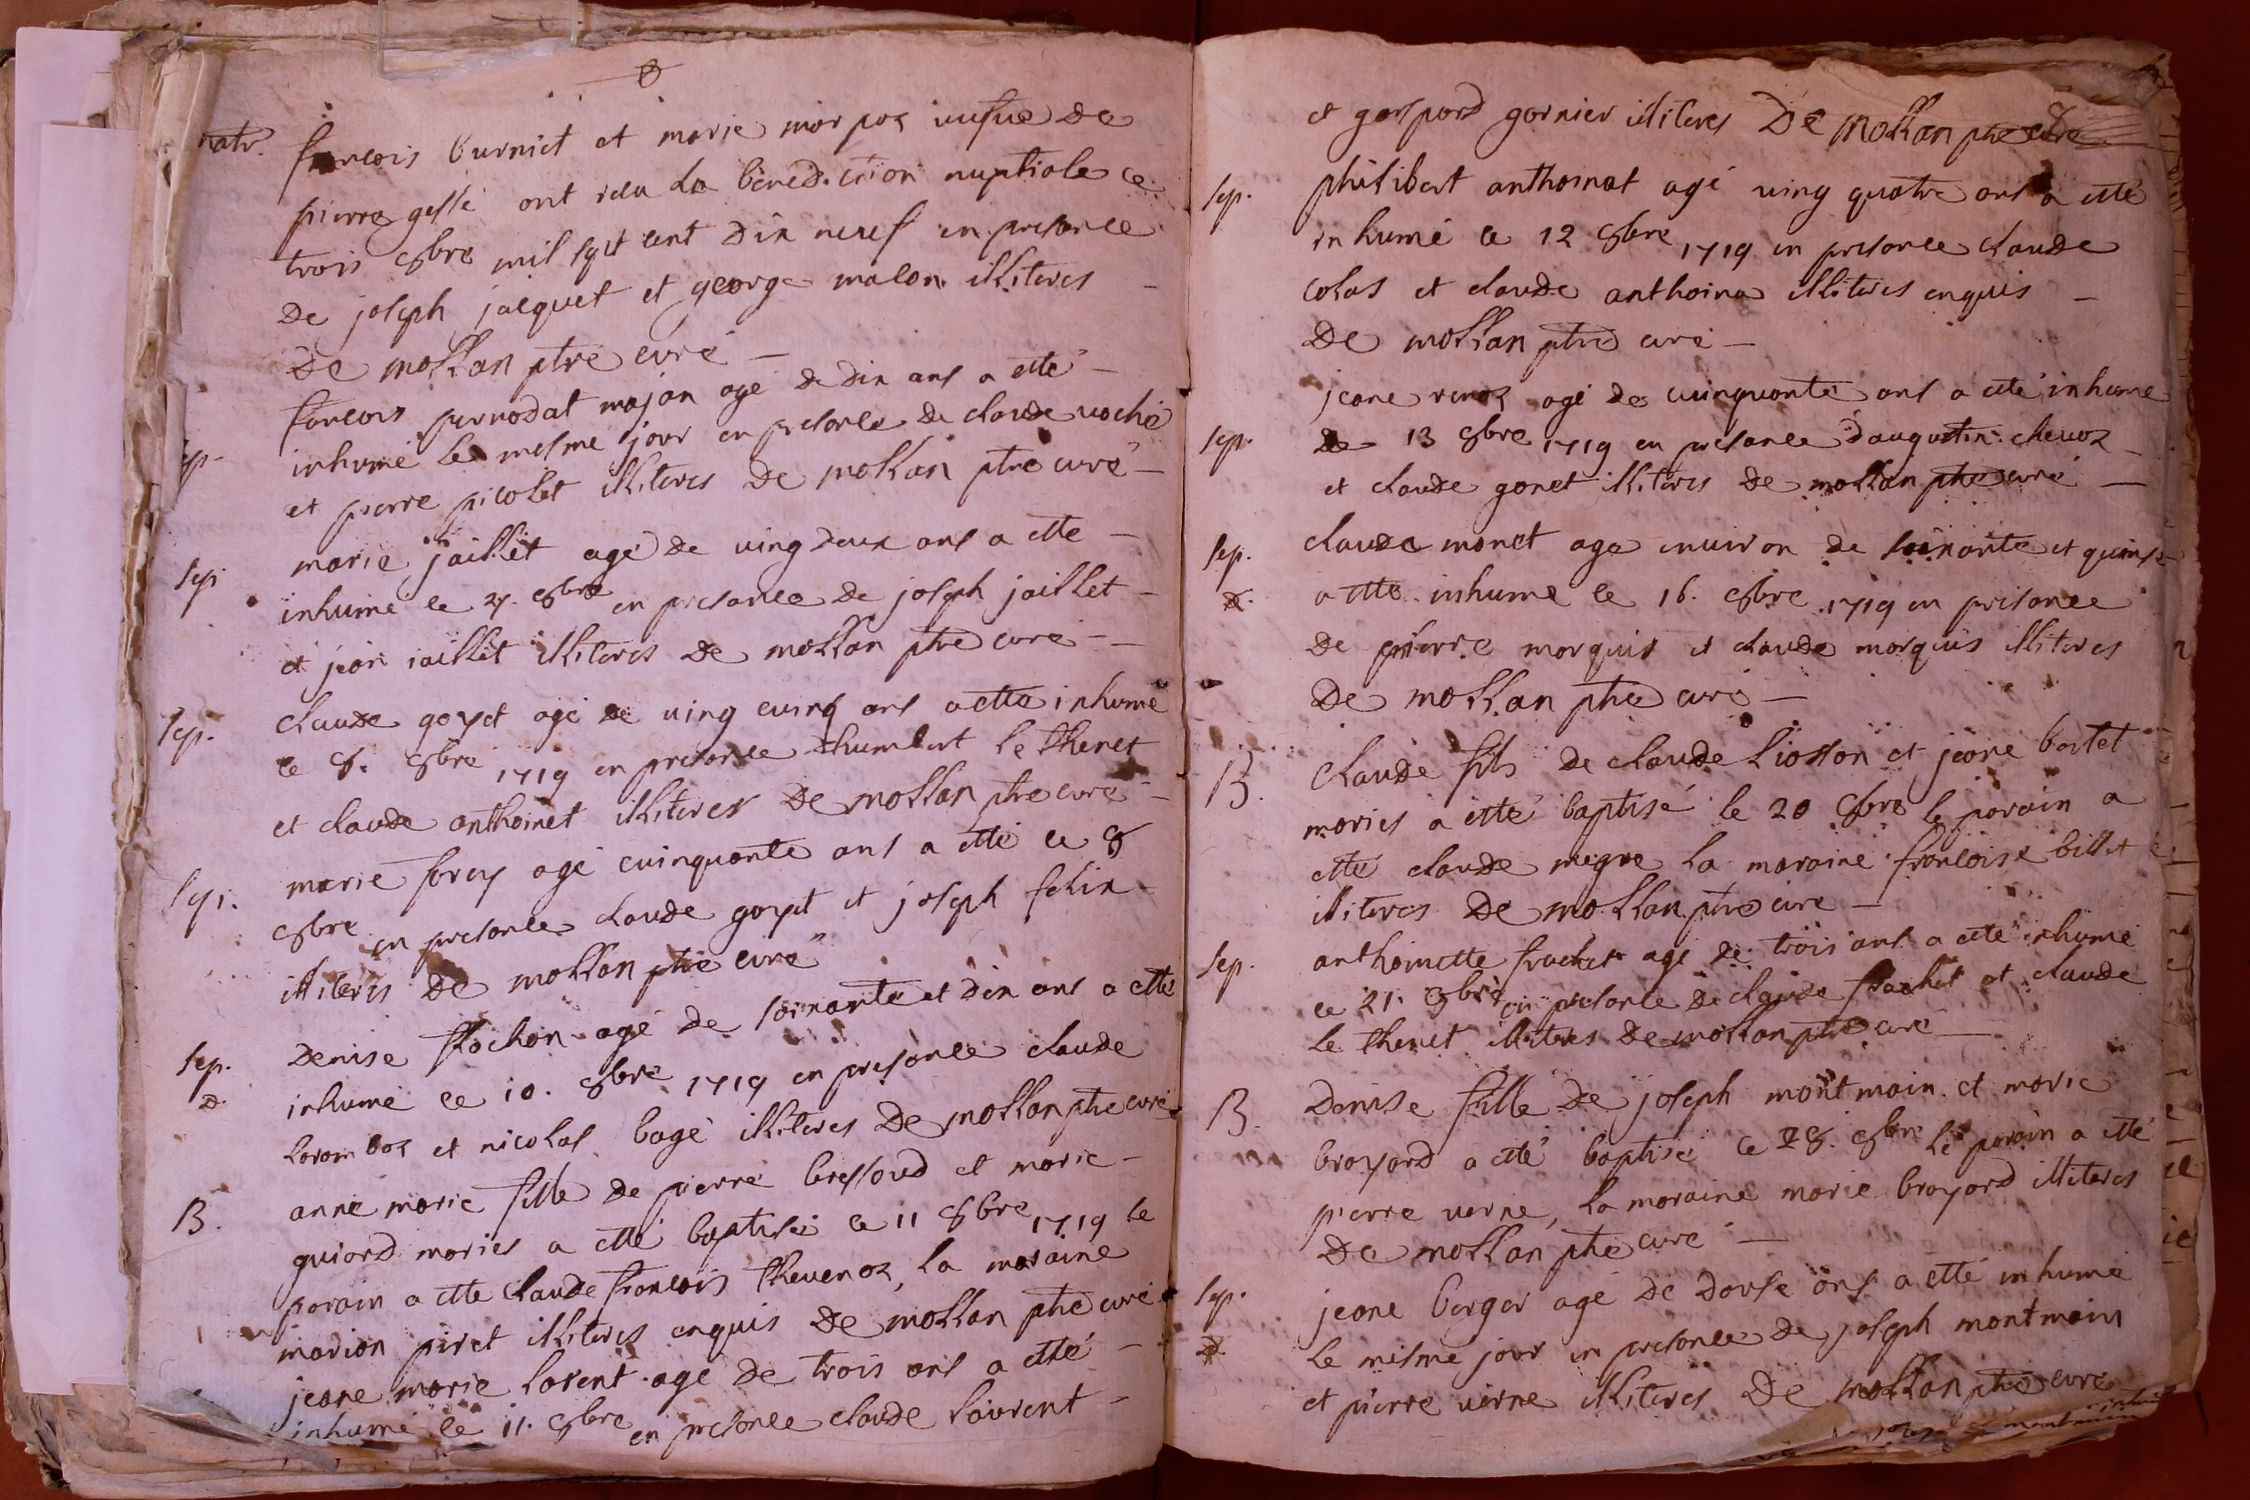 matr. francois burnict et marie morpos vefue de
pierre gessé ont receu la benediction nuptiale ce
trois 8bre mil sept cent dix neuf en presance
de joseph jacquet et george malon illiteres
De mollan ptre curé
francois pernodat majan agé de dix ans a etté
sep. inhumé le mesme jour en presance de claude voche
et pierre picolet illiteres De mollan ptre curé
marie jaillet agé de ving deux ans a etté
sep. inhumé ce 8bre en presance de joseph jaillet
et jean iaillet illiteres De mollan ptre curé
sep. claude goyet agé de ving cuinq ans a etté inhumé
ce 8. 8bre 1719 en presance dhumbert le thenet
et claude anthoinet illiteres De mollan ptre curé
sep. marie forey agé cuinquante ans a etté ce 8
8bre en presance claude goyet et joseph felix
illiteres De mollan ptre curé
sep. Denise flochon agé de soixante et dix ans a etté
D. inhumé ce 10. 8bre 1719 en presance claude
laramboz et nicolas bagé illiteres De mollan ptre curé
B. anne marie fille de pierre bressoud et marie
guiard mariés a etté baptisé ce 11 8bre 1719 le
parain a etté claude francois thevenoz, la maraine
marion piret illiteres enquis De mollan ptre curé
jeane marie lorent agé de trois ans a etté
inhumé le 11. 8bre en presance claude laurent
et gaspard garnier illiteres De mollan ptre curé
sep. philibert anthoinat agé ving quatre ans a etté
inhumé ce 12 8bre 1719 en presance claude
colas et claude anthoina illiteres enquis
De mollan ptre curé
jeane renoz agé de cuinquante ans a etté inhumé
sep. 13 8bre 1719 en presance daugustin chevoz
et claude gonet illiteres De mollan ptre curé
sep. claude monet agé environ de soixante et quinse
D. a etté inhumé le 16. 8bre 1719 en presance
de pierre marquis et claude marquis illiteres
De mollan ptre curé
B. Claude fils de claude liosson et jeane bertet
mariés a etté baptisé le 20 8bre le parain a
etté claude megre la maraine francoise billet
illiteres De mollan ptre curé
sep. anthoinette frachet agé de trois ans a etté inhumé
ce 21. 8bre en presance de claude frachet et claude
le thenet illiteres De mollan ptre curé
B. Denise fille de joseph montmain et marie
broyard a etté baptisé ce 28. 8bre le parain a etté
pierre verne, la maraine marie broyard illiteres
De mollan ptre curé
sep. jeane berger agé de douse ans a etté inhumé
D. le mesme jour en presance de joseph montmain
et pierre verne illiteres De mollan ptre curé